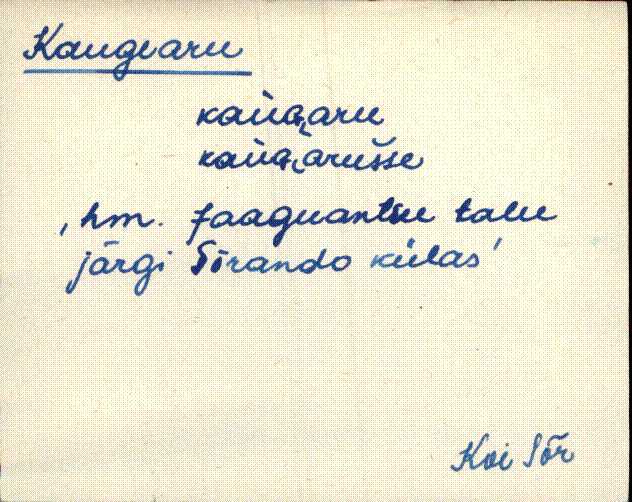 Kaugearu
kaùG̨aru
kaùG̨arušše
‚hm. Jaaguantsu talu
järgi Sõrando külas’
Koi Sõr